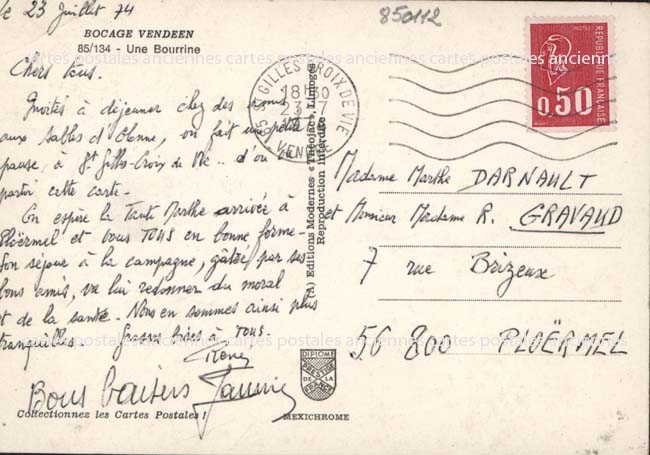 Le 23 Juillet 74
850112
BOCAGE VENDEEN
85/134 - Une Bourrine
Chers tous.
Invités à déjeuner chez des amis
aux Sables d'Olonne, on fait une petite
pause, à St Gilles-Croix de Vie.. d'où va
partir cette carte.
On espère la Tante Marthe arrivée à
Ploërmel et vous TOUS en bonne forme.
Son séjour à la campagne, gâtée par ses
bons amis, va lui redonner du moral
et de la santé. Nous en sommes ainsi plus
tranquilles. Grosses bises à TOUS.
Bons baisers
Collectionnez les Cartes Postales !
(A) Editions Modernes « Théojac », Limoges
Reproduction interdite
DIPLOME
PRESTIGE
DE LA
FRANCE
MEXICHROME
85 ST GILLES CROIX DE VIE
18H30
23-7
VENDEE
REPUBLIQUE FRANÇAISE
POSTES
0,50
Madame Marthe DARNAULT
et Monsieur Madame R. GRAVAUD
7 rue Brizeux
56 800 PLOËRMEL
cartes postales anciennes cartes postales anciennes cartes postales anciennes